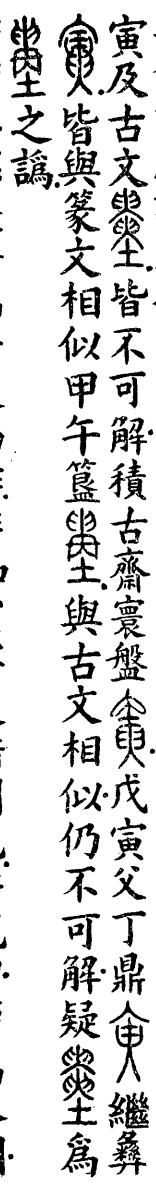 寅及古文皆不可解積古齋寰盤戊寅父丁鼎繼彝
皆與篆文相似甲午簋與古文相似仍不可解疑爲
之譌